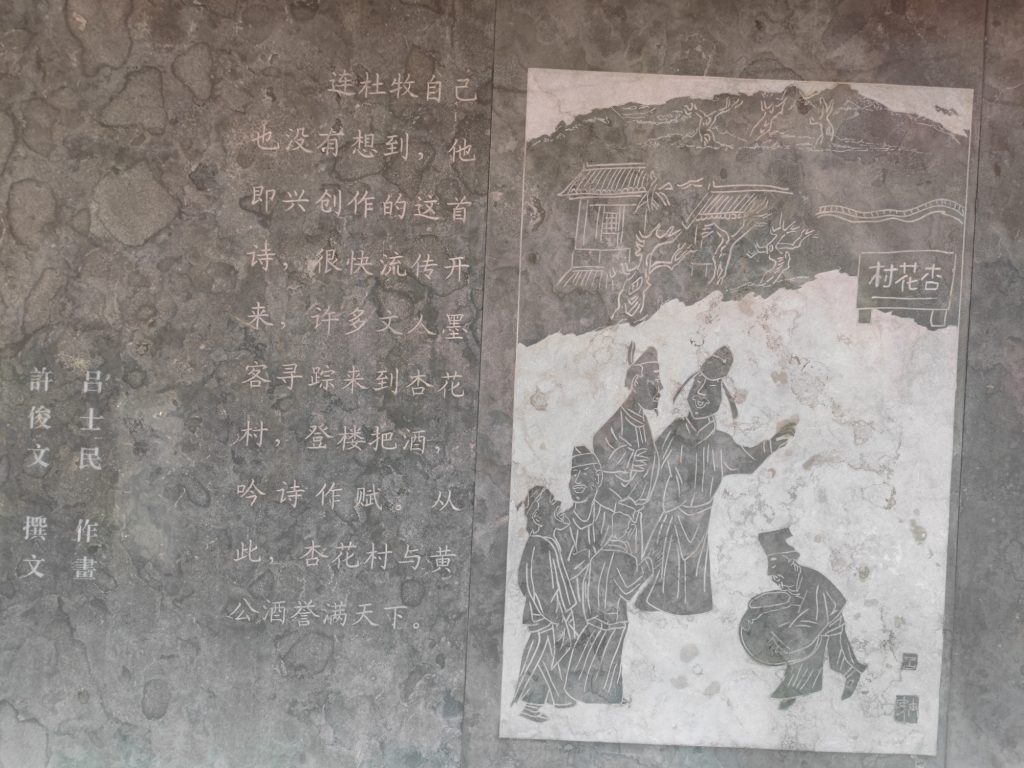 连杜牧自己
也没有想到，他
即兴创作的这首
诗，很快流传开
来，许多文人墨
客寻踪来到杏花
村，登楼把酒，
吟诗作赋。从
此，杏花村与黄
公酒誉满天下。
吕士民 作畫
許俊文 撰文
杏花村